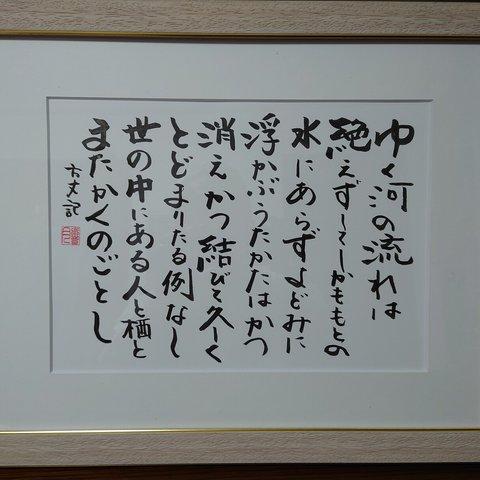 ゆく河の流れは
絶えずしてしかももとの
水にあらずよどみに
浮かぶうたかたはかつ
消えかつ結びて久しく
とどまりたる例なし
世の中にある人と栖と
またかくのごとし
方丈記